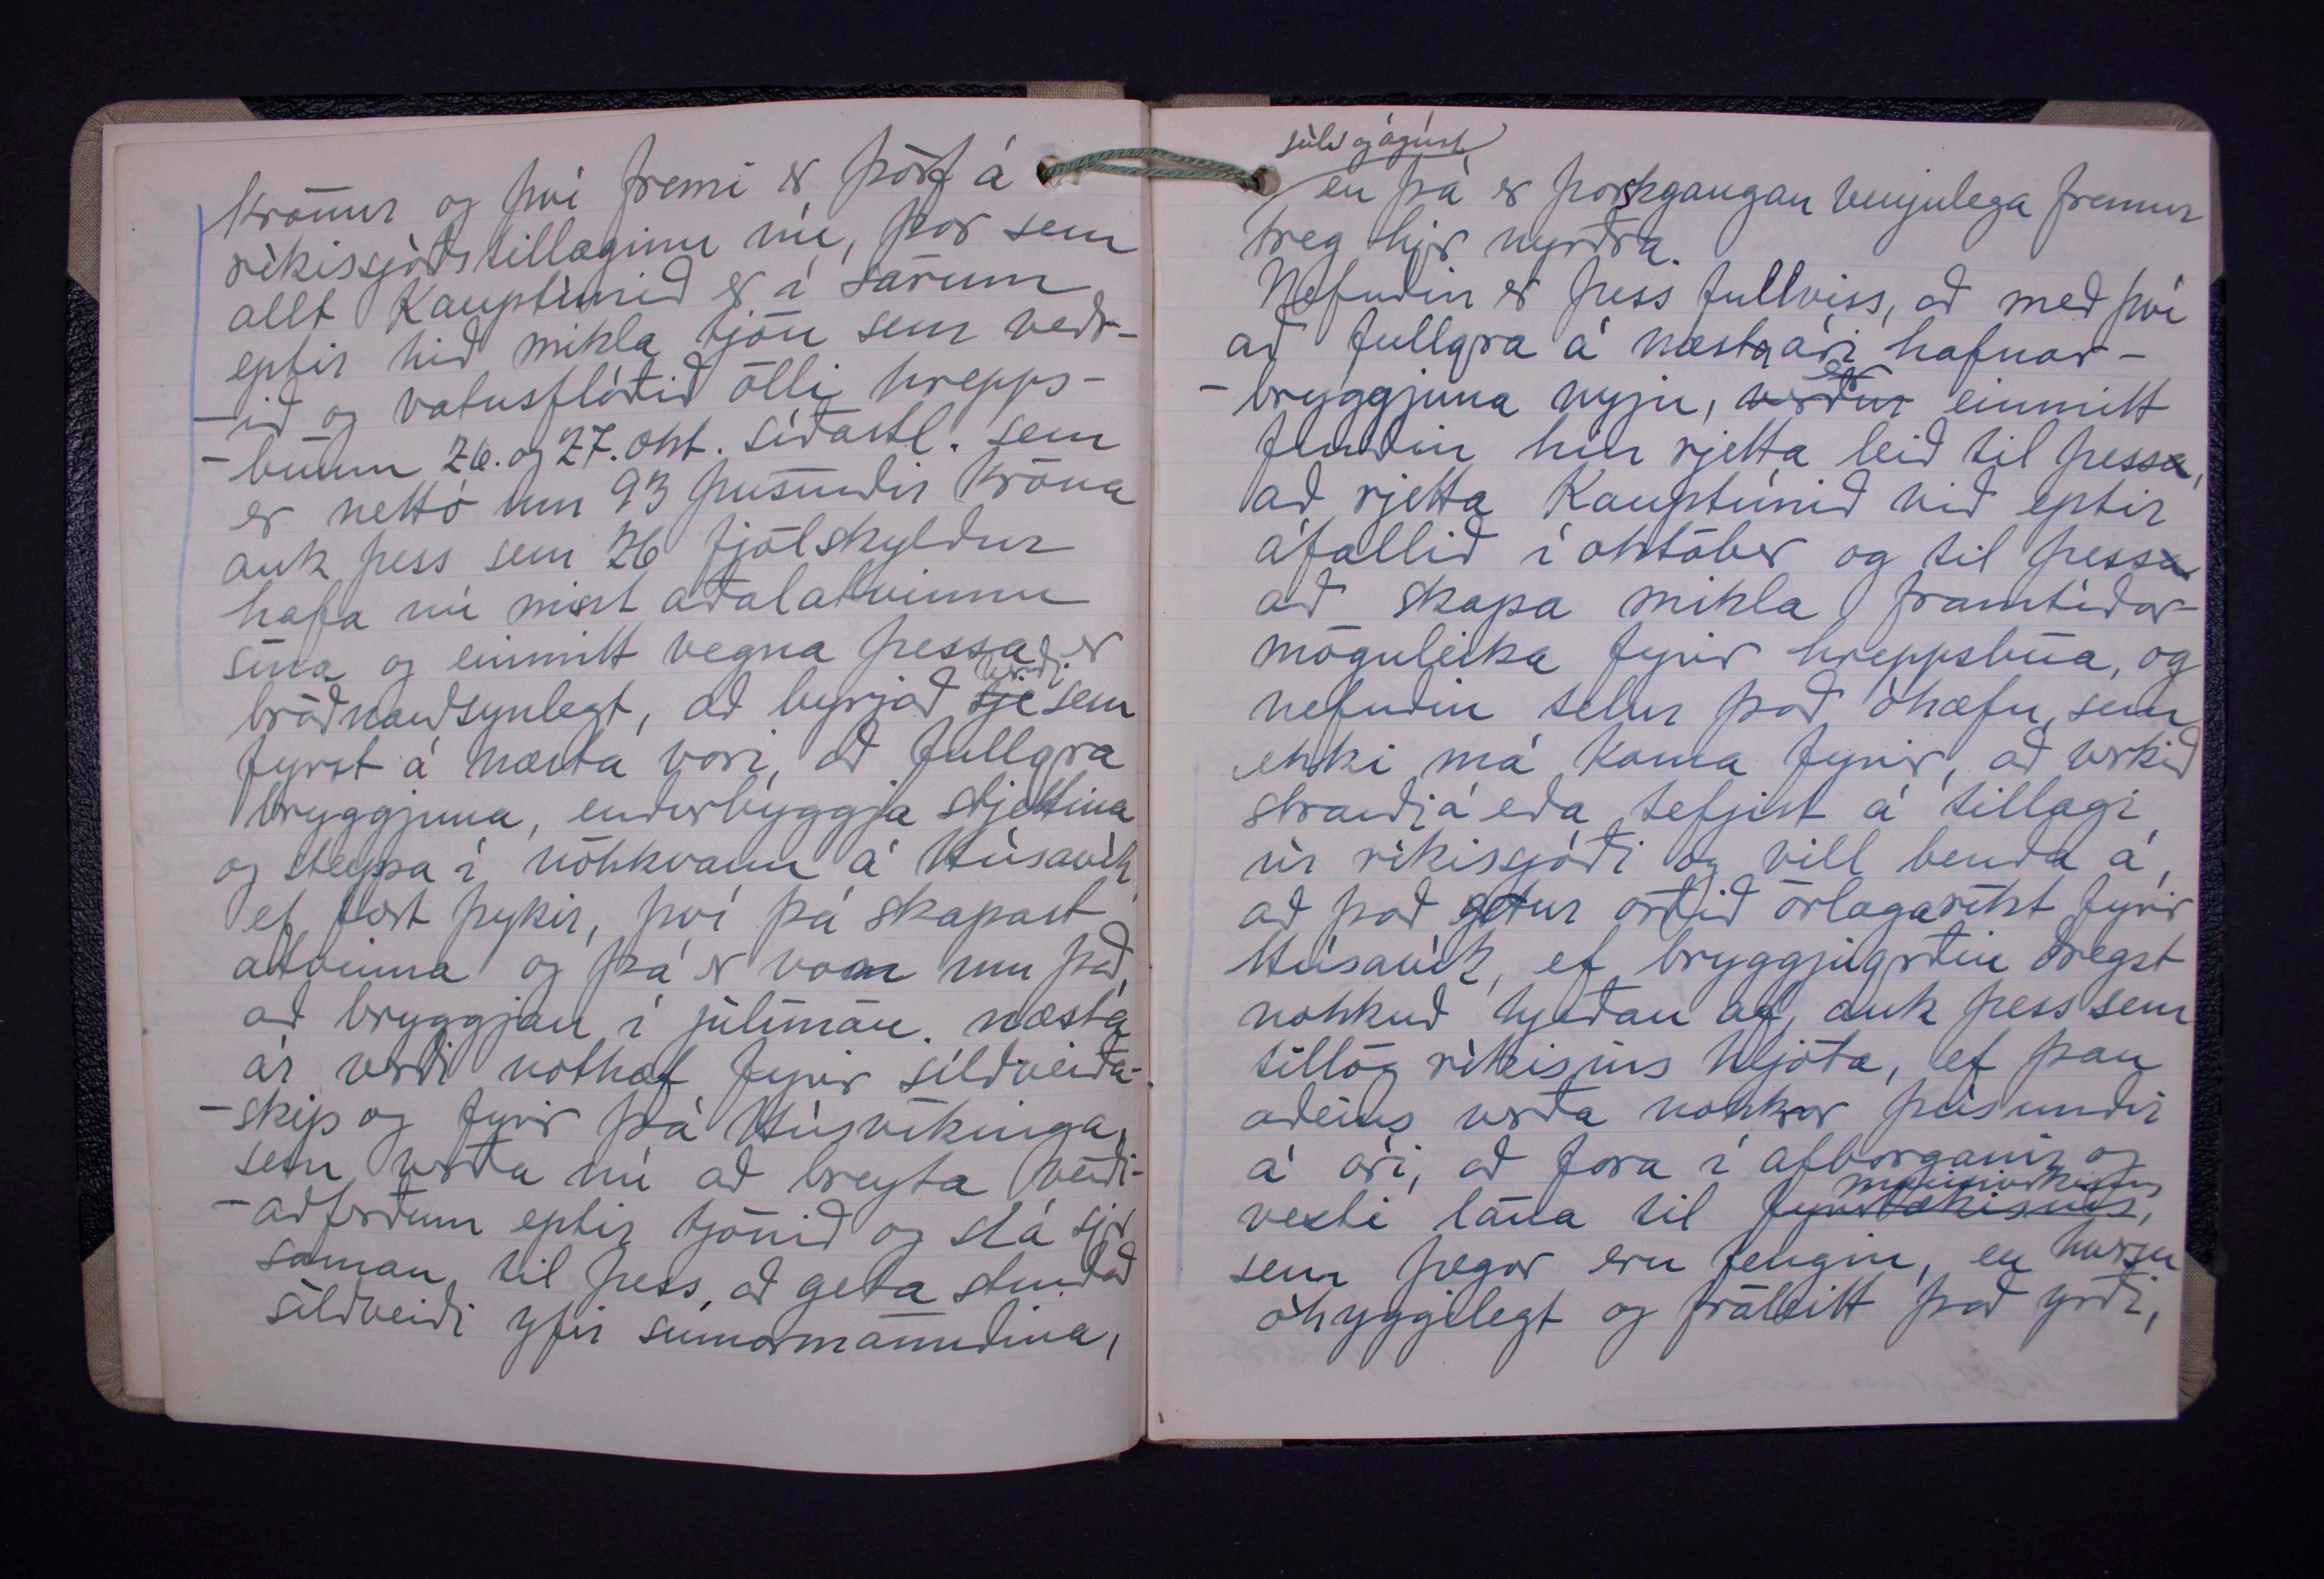 krónur og því fremi er þörf á
ríkissjóðstillaginu nú, þar sem
allt Kauptúnið er í sárum
eptir hið mikla tjón sem veðr-
-ið og vatnsflóðið olli hrepps-
-búum 26. og 27. okt. síðastl. sem
er nettó um 93 þúsundir króna
auk þess sem 26 fjölskyldur
hafa nú mist aðalatvinnu
sína og einmitt vegna þessa er
bráðnauðsynlegt, að byrjað sje verði sem
fyrst á næsta vori, að fullgera
bryggjuna, endurbyggja stjettina
og steypa í nökkvann á Húsavík
ef fært þykir, því þá skapast
atvinna og þá er von um það,
að bryggjan í júlímán. næsta
ár verði nothæf fyrir síldveiða-
-skip og fyrir þá Húsvíkinga,
sem verða nú að breyta veiði-
-aðferðum eptir tjónið og slá sjer
saman, til þess, að geta stundað
síldveiði yfir sumarmánuðina,
júlí og ágúst,
en þá er þorskgangan venjulega fremur
treg hjer nyrðra.
Nefndin er þess fullviss, að með því
að fullgera á næsta ári hafnar-
-bryggjuna nyju, verður er einmitt
fundin hin rjetta leið til þessa,
að rjetta Kauptúnið við eptir
áfallið í október og til þessa
að skapa mikla framtíðar-
möguleika fyrir hreppsbúa, og
nefndin telur það óhæfu, sem
ekki má koma fyrir, að verkið
strandi á eða tefjist á tillagi
úr ríkissjóði og vill benda á,
að það getur orðið örlagaríkt fyrir
Húsavík, ef bryggjugerðin dregst
nokkuð hjeðan af, auk þess sem
tillög ríkisins hljóta, ef þau
aðeins verða nokkrar þúsundir
á ári, að fara í afborganir og
vexti lána til fyrirtækisins, mannvirkisins
sem þegar eru fengin, en hversu
óhyggilegt og fráleitt það yrði,